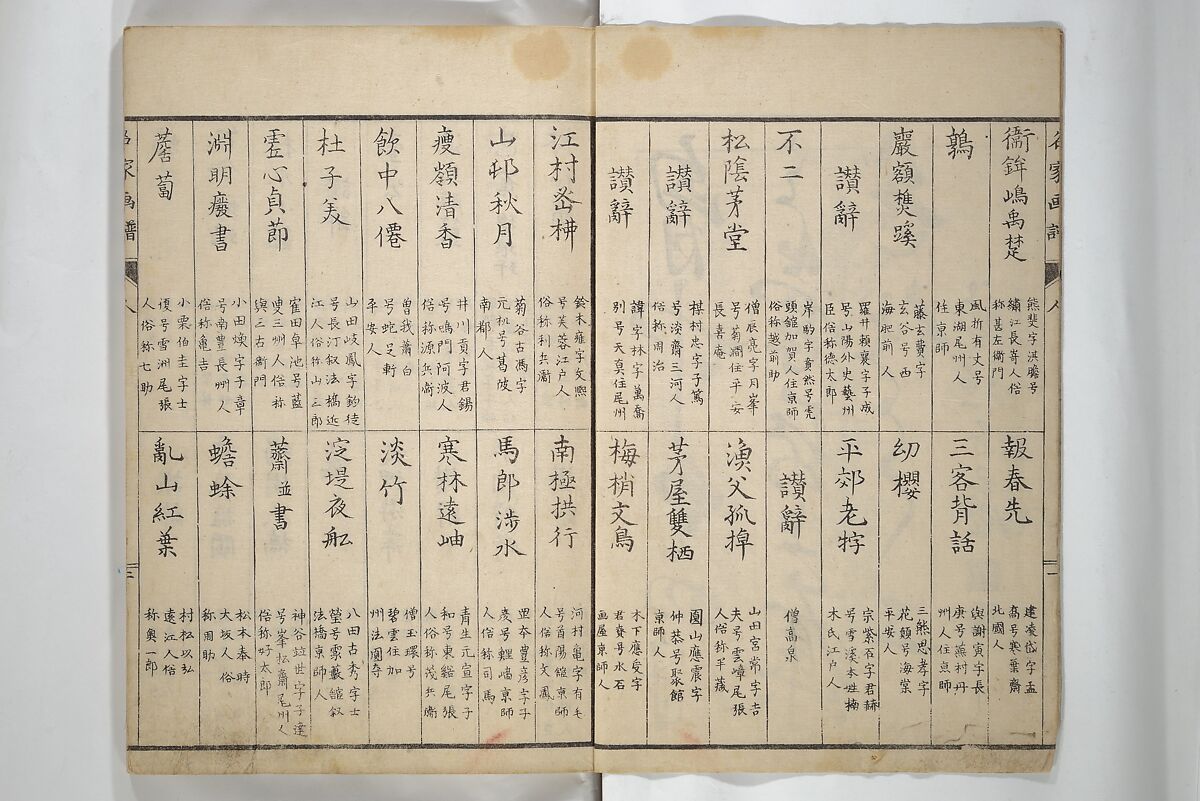 名家画譜
衞鉾嶋禹楚
熊斐字淇瞻号
繡江長嵜人俗
称甚左衛門
鶉
風折有丈号
東湖尾州人
住京師
巖額樵蹊
藤玄費字
玄谷号西
海肥前人
讃辭
羅井頼襄字子成
号山陽外史藝州
臣俗称徳太郎
不二
岸駒字賁然号虎
頭館加賀人住京師
俗称越前助
松陰茅堂
僧辰亮字月峯
号菊澗住平安
長喜庵
讃辭
棋村忠字子篤
号淡齋三河人
俗称周治
讃辭
諱字林字萬喬
別号天真住尾州
報春先
建凌岱字孟
喬号寒葉齋
北國人
三客背話
與謝寅字長
庚号瀮村丹
州人住京師
幼櫻
三熊思孝字
花顛号海棠
平安人
平郊老牸
宗紫石字君赫
号雪溪本姓楠
木氏江户人
讃辭
僧高泉
漁父孤棹
山田宮常字吉
夫号雲嶂尾張
人俗称半藏
茅屋雙栖
圓山應震字
仲恭号聚館
京師人
梅梢文鳥
木下應受字
君賚号水石
画屋京師人
江村
鈴木雍字文熈
号芙蓉江戸人
俗称利兵衞
山邨秋月
菊谷古馮字
元机号葛陂
南都人
痩嶺清香
井川貢字君錫
号鳴門阿波人
俗称源兵衞
飲中八僊
曽我蕭白
号蛇足軒
平安人
杜子美
山田岐鳳字鈞徒
号長汀叙法橋近
江人俗称山三郎
虚心貞節
寉田卓池号藍
叟三州人俗称
與三右衞門
淵明癈書
小田煥字子章
号南豊長州人
俗称亀吉
薝蔔
小栗伯圭字士
復号雪洲尾張
人俗称七助
南極拱行
河村亀字有毛
号首陽館京師
人俗称文鳳
馬郎渉水
豊彦字子
慶号鯉喃京師
人俗称司馬
寒林遠岫
青生元宣字子
和号東谿尾張
人俗称茂兵衞
淡竹
僧玉瑗号
碧雲住加
州法圓寺
淀堤夜舩
八田古秀字士
瑩号霧藪館叙
法橋京師人
蘭並書
神谷竝世字子達
号峯松齋尾州人
俗称好太郎
蟾蜍
松本奉時
大坂人俗
称周助
亂山紅葉
村松以弘
遠江人俗
称與一郎
名家画譜
人
二